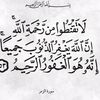 لَا تَقْنَطُوا مِن رَّحْمَةِ اللَّهِ
إِنَّ اللَّهَ يَغْفِرُ الذُّنُوبَ جَمِيعًا
إِنَّهُ هُوَ الْغَفُورُ الرَّحِيمُ